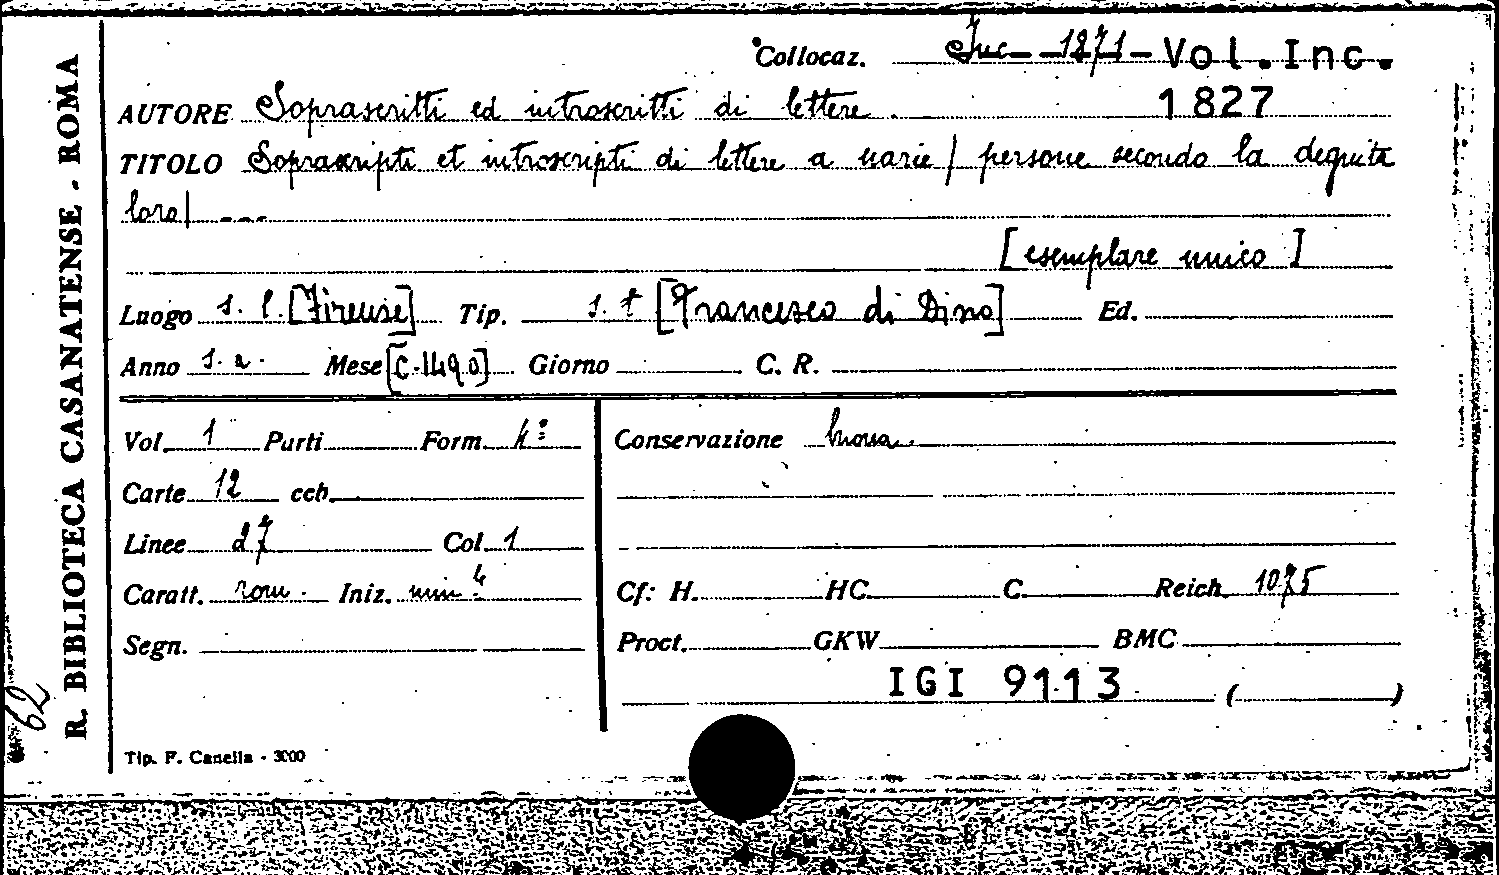 R. BIBLIOTECA CASANATENSE - ROMA
Collocaz. Inc. 1271 - Vol. Inc.
1827
AUTORE Soprascritti ed introscritti di lettere.
TITOLO Soprascripti et introscripti di lettere a varie / persone secondo la degnita
loro| ...
[esemplare unico]
Luogo s. l. [Firenze] Tip. s. t [Francesco di Dino] Ed.
Anno s. a. Mese [c. 1490] Giorno C. R.
Vol. 1 Parti Form. 4°
Conservazione buona.
Carte 12 ccb.
Linee 27 Col. 1
Caratt. rom. Iniz. min.
Cf: H. HC. C. Reich. 1075
Segn.
Proct. GKW BMC
IGI 9113 ( )
62
Tip. F. Canella - 3000